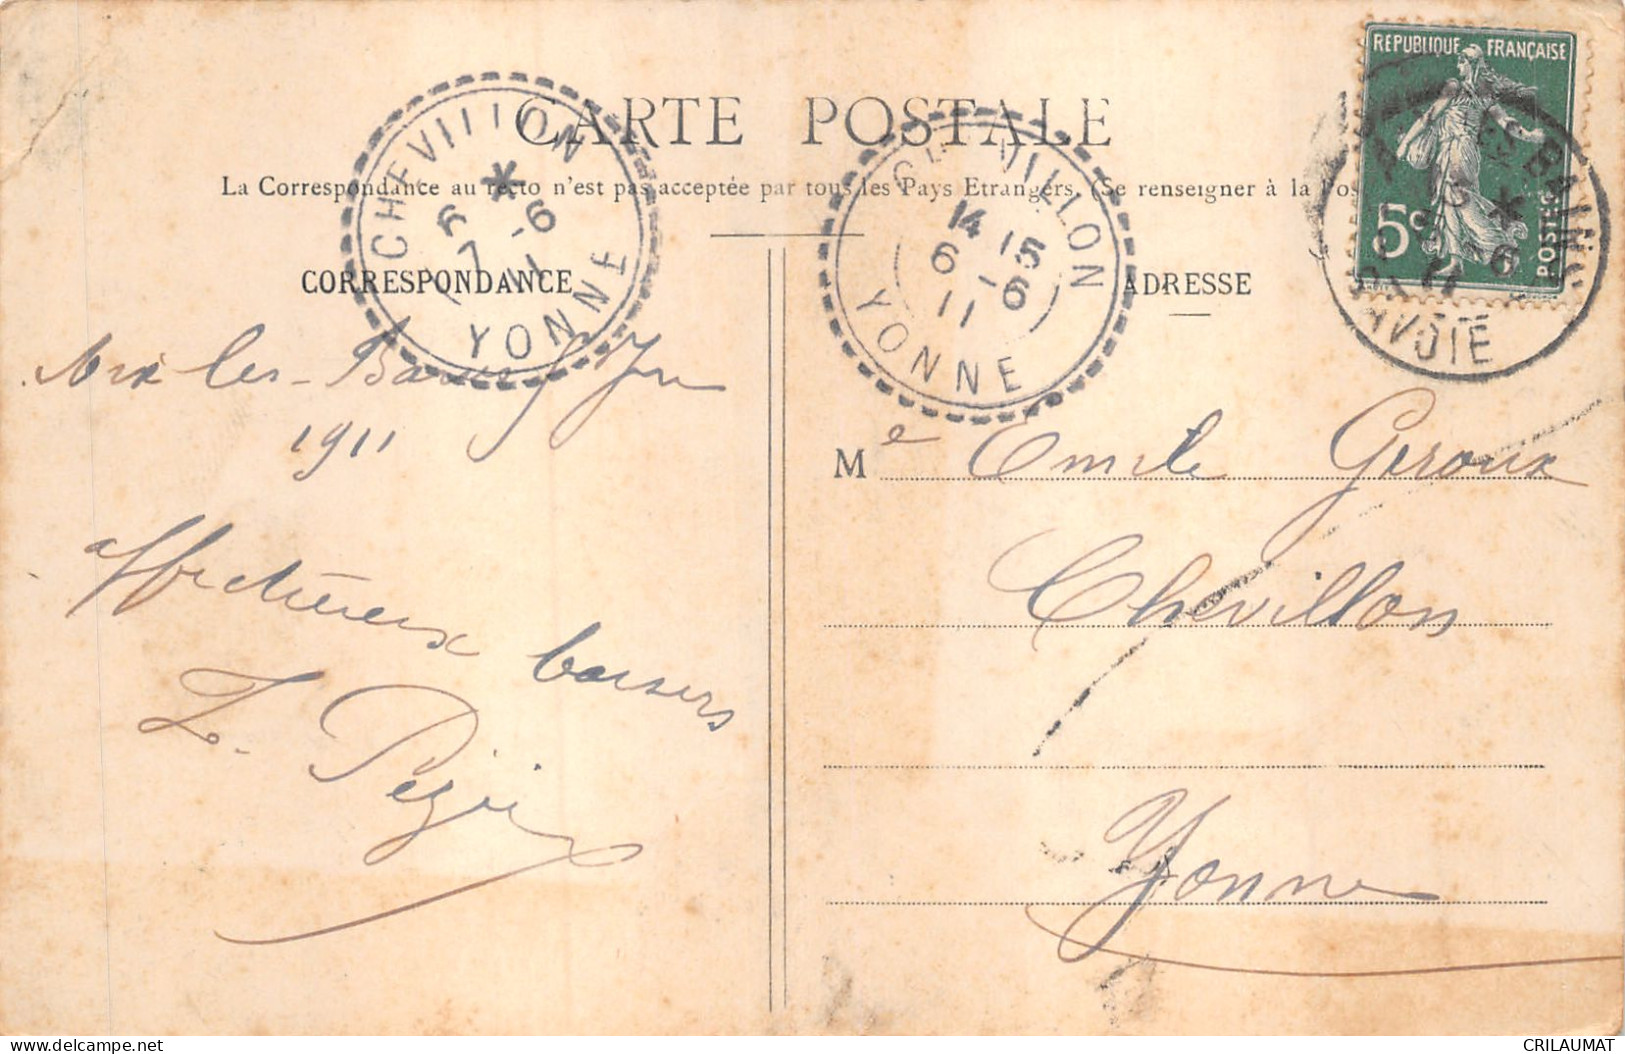 CARTE POSTALE
La Correspondance au recto n'est pas acceptée par tous les Pays Etrangers. (Se renseigner à la Pos
CORRESPONDANCE
ADRESSE
REPUBLIQUE FRANÇAISE
5c
POSTES
CHEVILLON
*
7 -6
11
YONNE
CHEVILLON
14 15
6 -6
11
YONNE
LES BAINS
*
SAVOIE
Aix les-Bains
1911
affectueux baisers
Me Emile Geroux
Chevillon
Yonne
CRILAUMAT